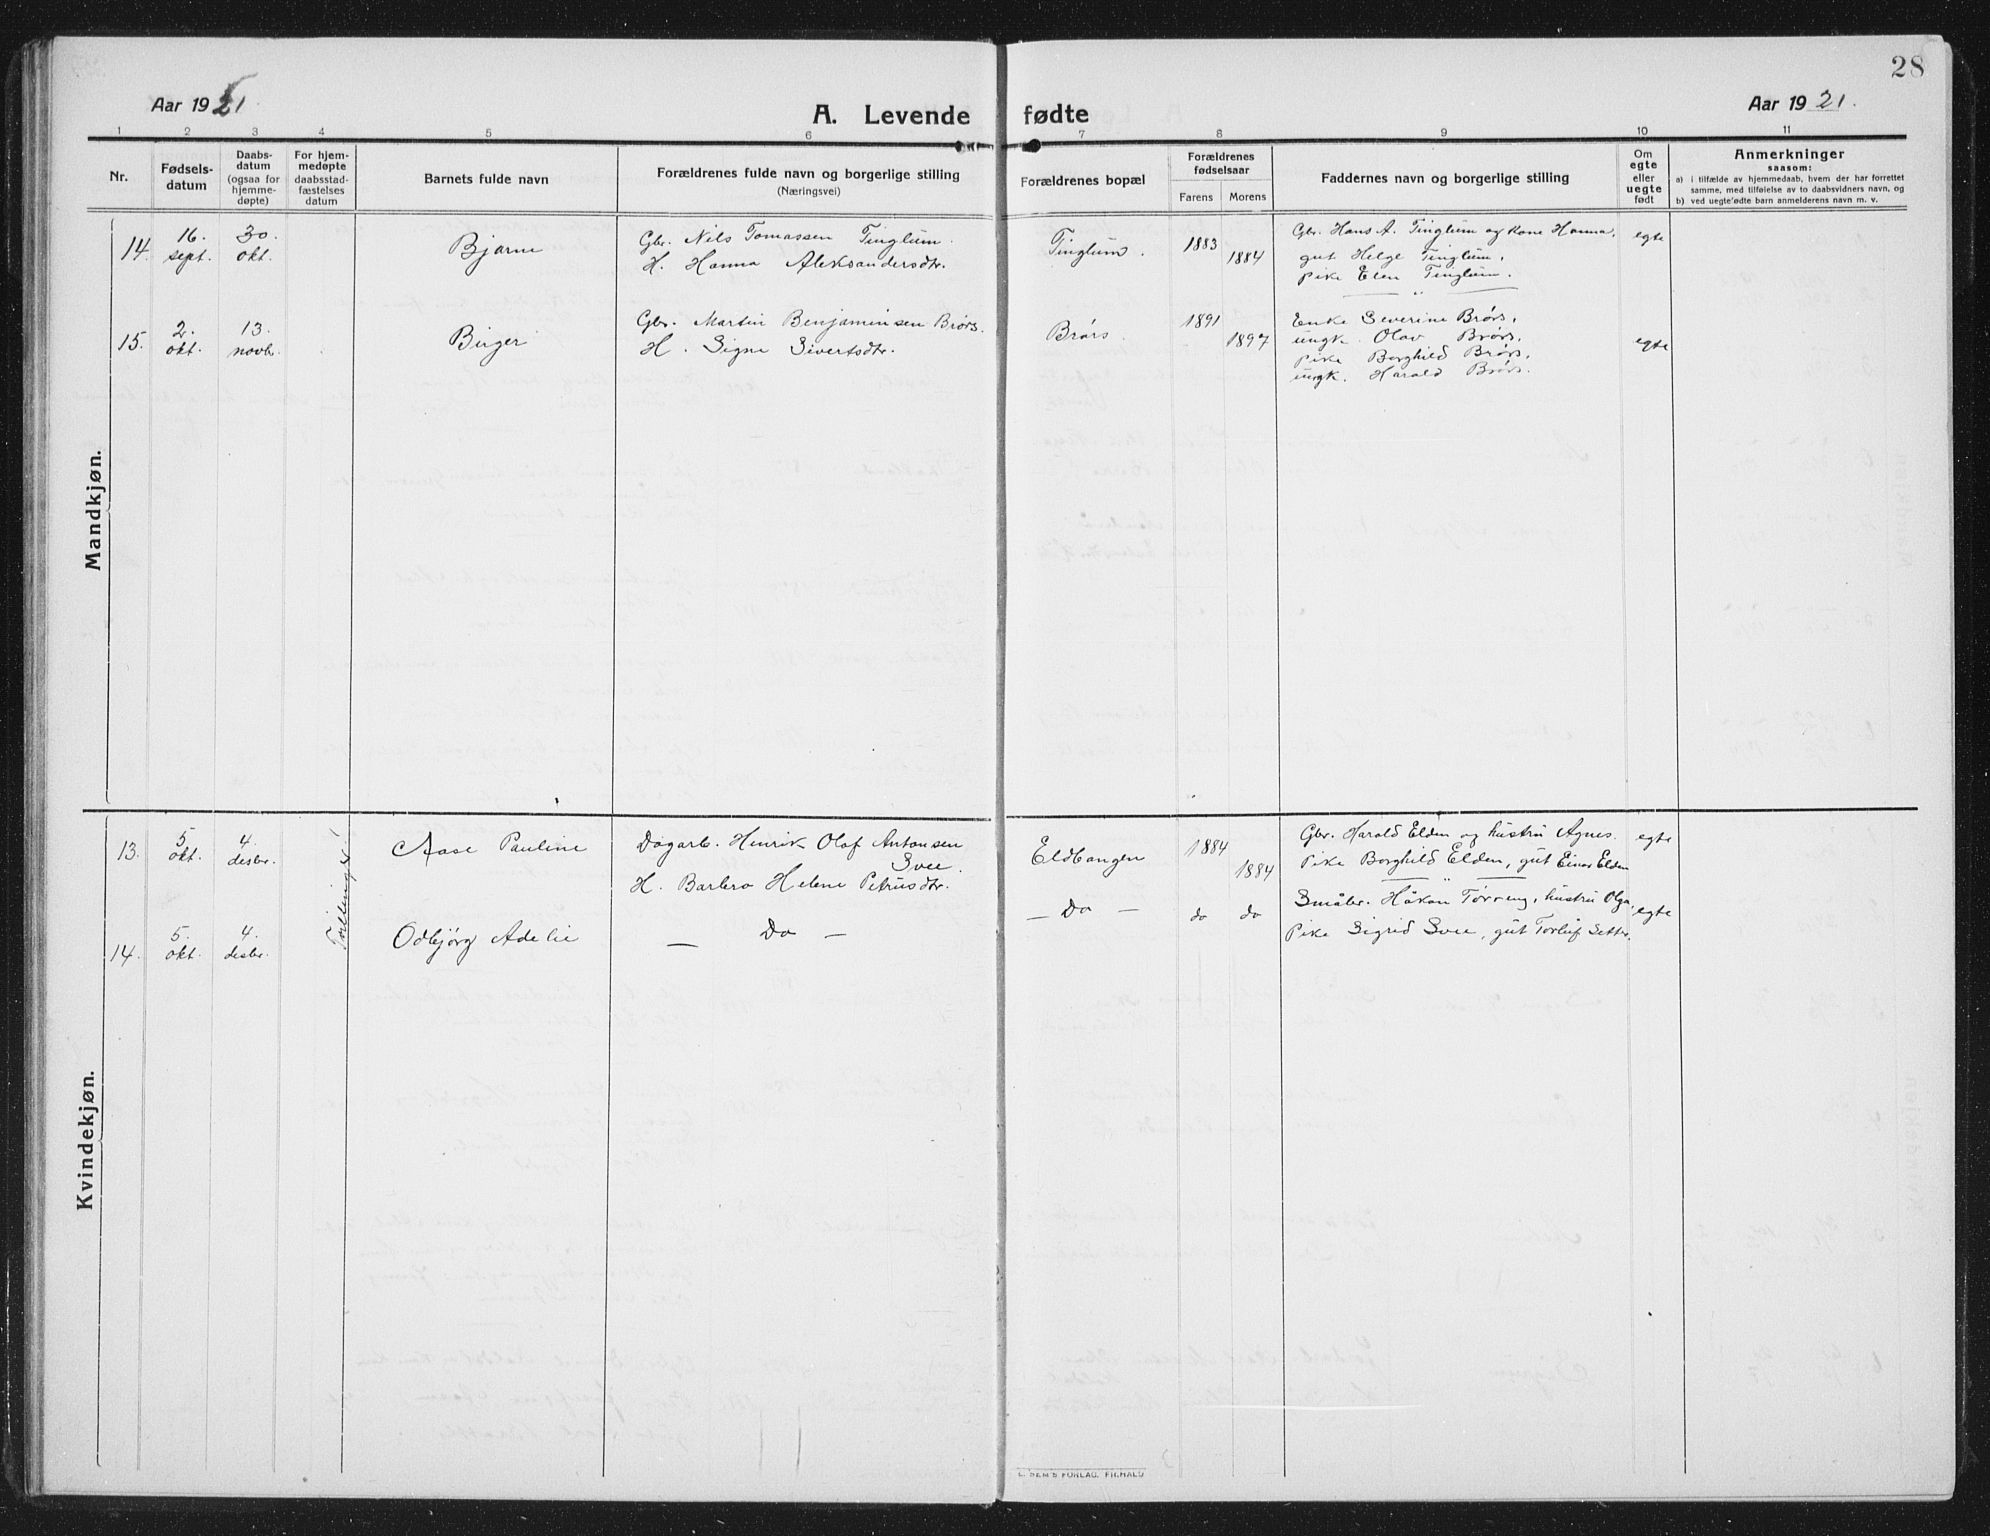 28
Aar 1921.
A. Levende fødte
Aar 1921.
1 2 3 4 5 6 7 8 9 10 11
Nr.
Fødsels-
datum
Daabs-
datum
(ogsaa for
hjemme-
døpte)
For hjem-
medøpte
daabsstad-
fæstelses
datum
Barnets fulde navn
Forældrenes fulde navn og borgerlige stilling
(Næringsvei)
Forældrenes bopæl
Forældrenes
fødselsaar
Farens Morens
Faddernes navn og borgerlige stilling
Om
egte
eller
uegte
født
Anmerkninger
saasom:
a) i tilfælde av hjemmedaab, hvem der har forrettet
samme, med tilføielse av to daabsvidners navn, og
b) ved uegte fødte barn anmelderens navn m. v.
Mandkjøn.
14. 16. sept. 30. okt. Bjarne
Gbr. Nils Tomassen Tinglum.
H. Hanna Aleksandersdtr.
Tinglum. 1883 1884
Gbr. Hans A. Tinglum og kone Hanna,
gut Helge Tinglum,
pike Elen Tinglum.
egte
15. 2. okt. 13. novb. Birger
Gbr. Martin Benjaminsen Brørs.
H. Signe Sivertsdtr.
Brørs 1891 1897
Enke Severine Brørs,
ungk. Olav Brørs,
pike Borghild Brørs,
ungk. Harald Brørs.
egte
Kvindekjøn.
13. 5. okt. 4. desbr. Tvillinger! Aase Pauline
Dagarb. Henrik Olaf Antonsen
Svee.
H. Barbro Helene Petrusdtr.
Eldbangen 1884 1884
Gbr. Harald Elden og hustru Agnes.
Pike Borghild Elden, gut Einar Elden
egte
14. 5. okt. 4. desbr. Odbjørg Adelie
— Do —
— Do — do do
Småbr. Håkon Tørring, hustru Olga,
Pike Sigrid Svee, gut Torleif Setter.
egte
E. SEM'S FORLAG. FR.HALD